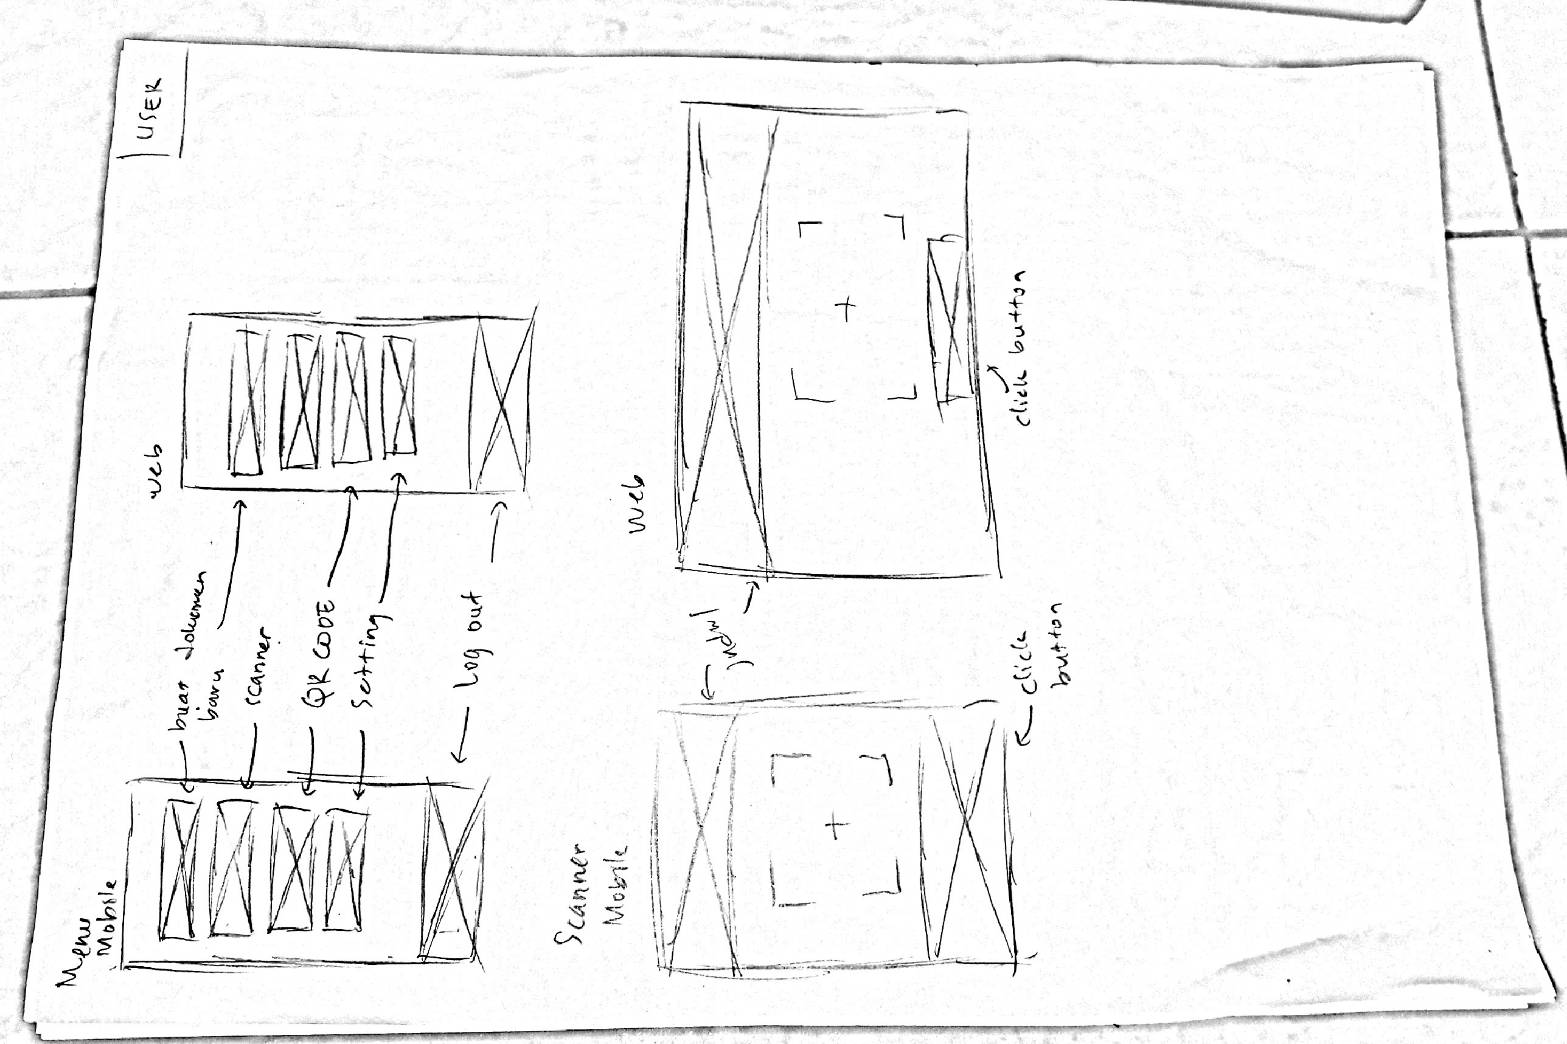 USER
Menu
Mobile
Web
buat dokumen
baru
scanner
QR CODE
Setting
Log out
Scanner
Mobile
Web
judul
click
button
click button